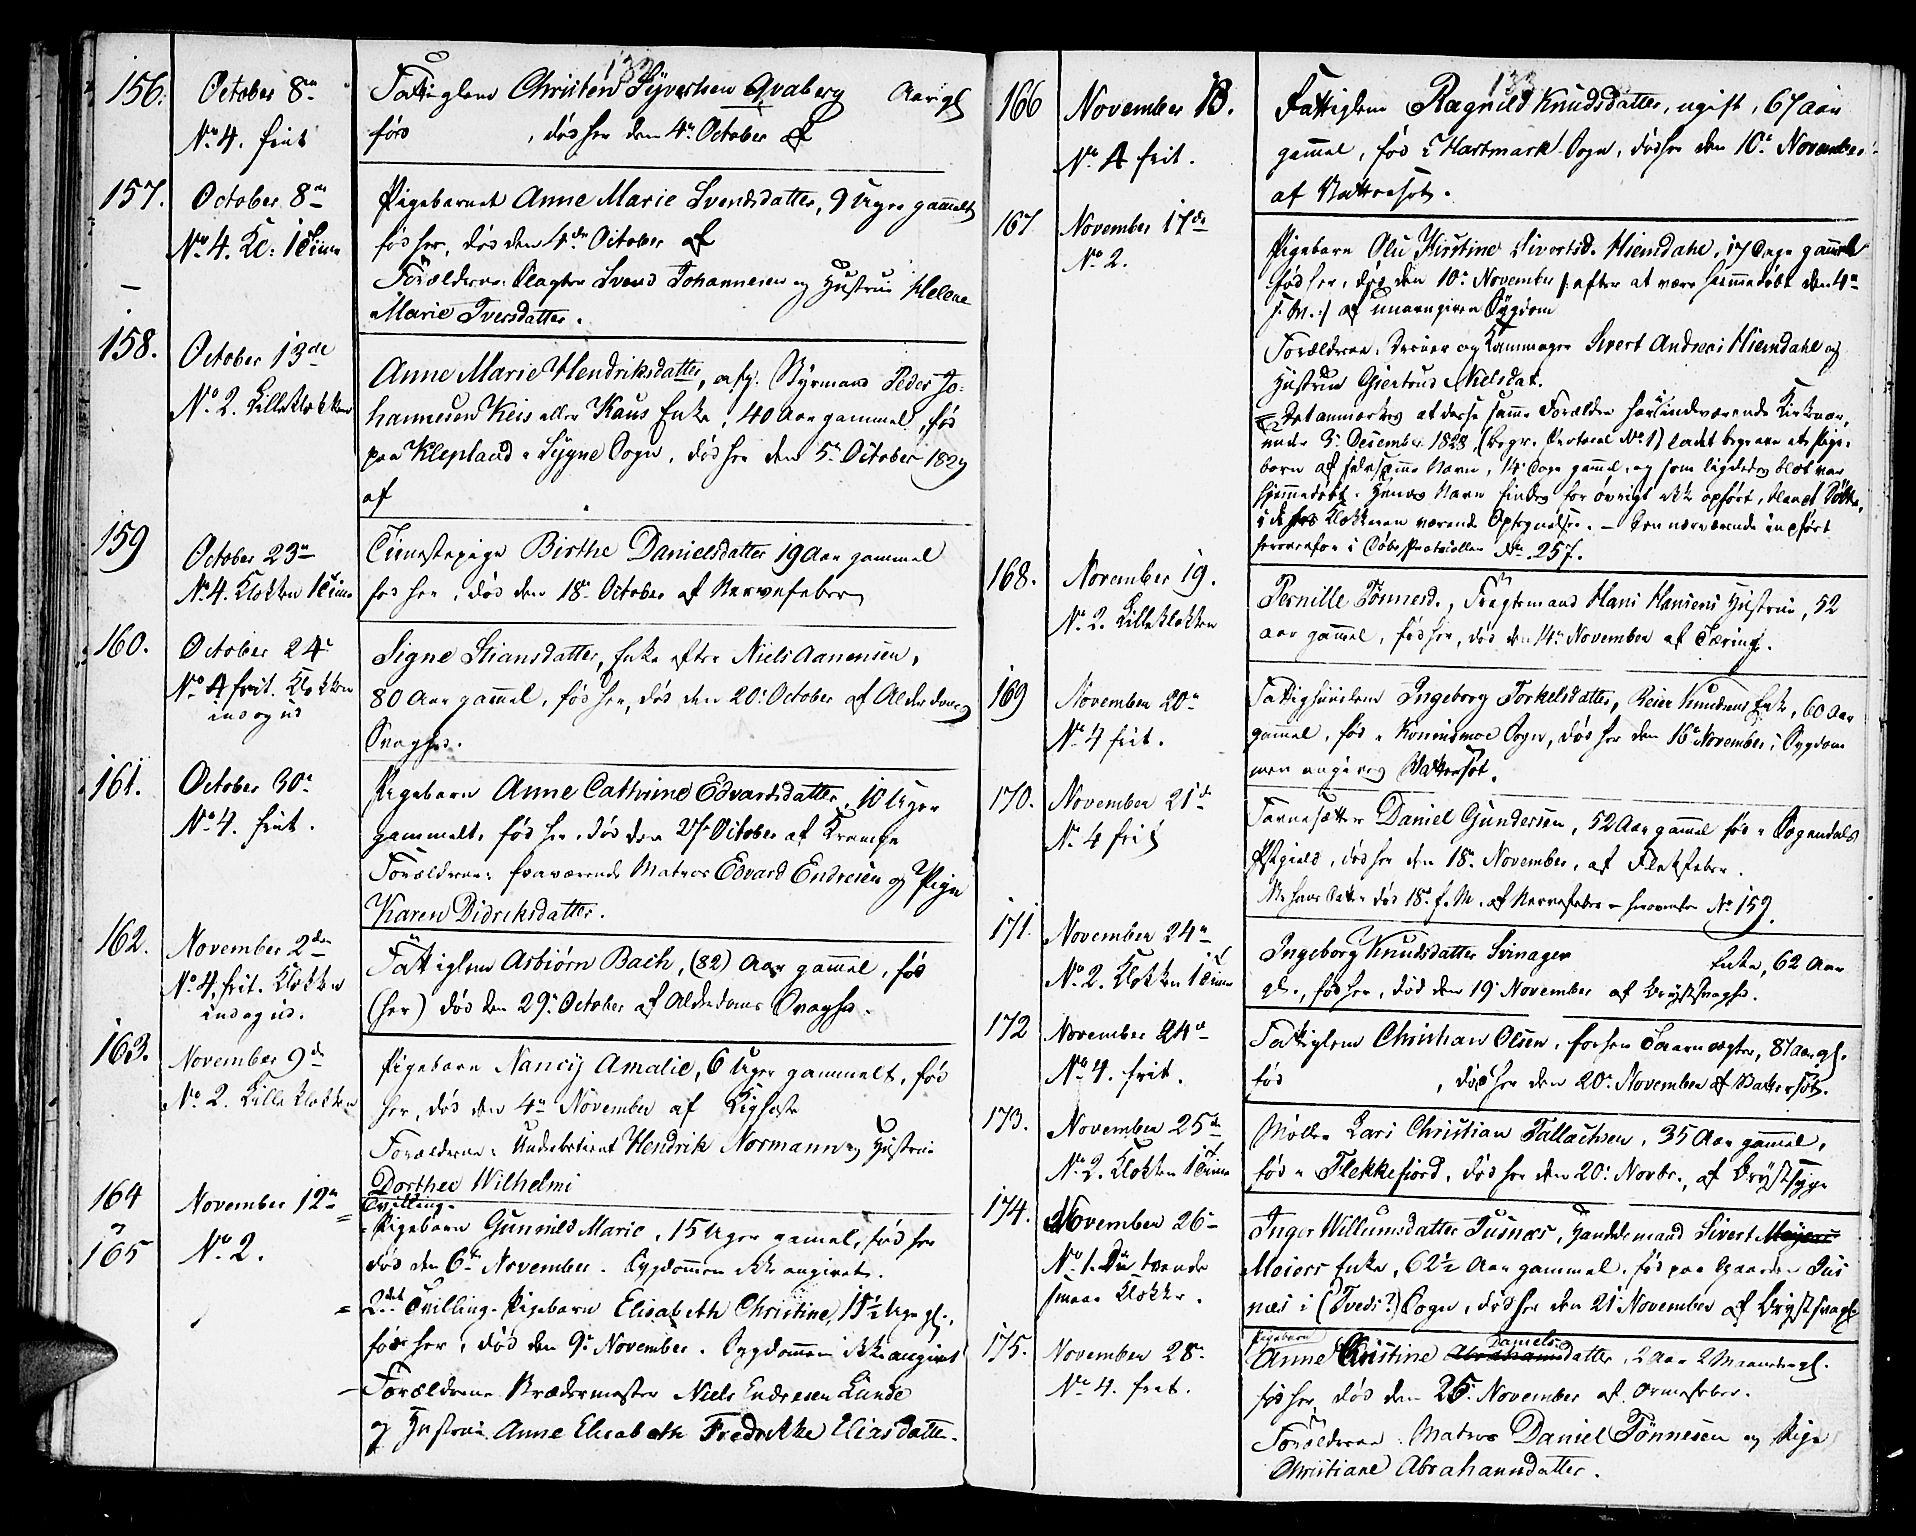 133
156. October 8de Fattiglem Christen Syvertsen Qvaberg Aar gl.
No 4. frit fød , død her den 4de October af
157. October 8de Pigebarnet Anne Marie Svendsdatter, 9 Uger gammelt
No 4. Kl: 1 Time fød her, død den 4de October af
Forældrene: Svend Johannesen og Hustrue Helene
Marie Iversdatter.
158. October 13de Anne Marie Hendriksdatter, afg. Styrmand Peder Jo-
No 2. Lilleklokken hannesen Keis eller Kaus Enke, 40 Aar gammel, fød
paa Klepland i Søgne Sogn, død her den 5te October 1829
af
159 October 23de Tienestepige Birthe Danielsdatter 19 Aar gammel
No 4. Klokken 1 Time fød her, død den 18de October af Nervefeber
160. October 24de Signe Stiansdatter, Enke efter Niels Aanensen,
No 4 frit. Klokken 80 Aar gammel, fød her, død den 20de October af Alderdoms
ind og ud Svaghed.
161. October 30te Pigebarn Anne Cathrine Edvardsdatter, 10 Uger
No 4. frit. gammelt, fød her, død den 27de October af Krampe
Forældrene: fraværende Matros Edvard Endresen og Pige
Karen Didriksdatter.
162. November 2den Fattiglem Asbiørn Bach, (82) Aar gammel, fød
No 4. frit. Klokken (her) død den 29de October af Alderdoms Svaghed.
ind og ud.
163. November 9de Pigebarn Nancy Amalie, 6 Uger gammelt, fød
No 2. Lilleklokken her, død den 4de November af
Forældrene: Underbetient Hendrik Normann og Hustrue
Dorthea Wilhelmi
164 November 12te Tvilling-
Pigebarn Gunnild Marie, 15 Uger gamel, fød her
165 No 2. død den 6te November. Sygdommen ikke angivet.
2det Tvilling-Pigebarn Elisabeth Christine, 15½ Uge gl.,
fød her, død den 9de November. Sygdommen ikke angivet
Forældrene Niels Endresen Lunde
og Hustrue Anne Elisabeth Fredrikke Eliasdatter.
133
166 November 13. Fattiglem Ragnild Knudsdatter, ugift, 67 Aar
No 4 frit. gammel, fød i Hartmark Sogn, død her den 10de November
af Vattersot.
167 November 17de Pigebarn Olu Kirstine Sivertsd. Hiemdahl, 17 Dage gammel
No 2. fød her, død den 10de November /: efter at være hiemmedøbt den 4de
s. M. :/ af unavngiven Sygdom
Forældrene: Sivert Andreas Hiemdahl og
Hustrue Giertrud Nielsdat.
Det anmærkes at disse samme Forældre har indværende Kirkeaar,
under 3de December 1828, (Begr. Protocol No 1) ladet begrave et Pige-
barn af selvsamme Navn, 14 Dage gammel, og som ligeledes blot var
hiemmedøbt. Hendes Navn findes for øvrigt ikke opført, blandt Døbte,
i de hos Klokkeren værende Optegnelser. – Den nærværende indført
i Døbe Protocollen No 257.
168. November 19. Pernille Tønnesd., Fragtemand Hans Hansens Hustrue, 52
No 2. Lilleklokken Aar gammel, fød her, død den 14de November af Tæring.
169 November 20de Ingeborg Torkelsdatter, Reier Knudsens Enke, 60 Aar
No 4 frit. gammel, fød i Konnismoe Sogn, død her den 16de November, Sygdom-
men angives Vattersot.
170. November 21de Daniel Gundersen, 52 Aar gammel fød i Sogndals
No 4 frit Pgield, død her den 18de November, af Flekfeber.
NB. hans Datter død 18de f. M. af Nervefeber No 159.
171. November 24de Ingeborg Knudsdatter Svinager Enke, 62 Aar
No 2. Klokken 1 Time gl., fød her, død den 19de November af Brystsvaghed.
172 November 24de Fattiglem Christian Olsen, forhen Taarnvægter, 81 Aar gl.
No 4. frit. fød , død her den 20de November af Vattersot.
173. November 25de Møller Lars Christian Tallachsen, 35 Aar gammel,
No 2. Klokken 1 Time fød i Flekkefiord, død her den 20de Novbr., af Brystsyge
174. November 26de Inger Willumsdatter Tusnæs, Handelsmand Sivert Meyers
No 1. De tvende Moiers Enke, 62½ Aar gammel, fød paa Gaarden Tus
smaa Klokker. næs i (Tveds?) Sogn, død her den 21de November af Brystsvagh.
175. November 28de Pigebarn Anne Cristine Abrahamsdatter Daniels, 2 Aar 2 Maaneder gl.
No 4. frit. fød her, død den 25de November af Ormefeber.
Forældrene: Matros Daniel Tønnesen og Pige
Christiane Abrahamsdatter.